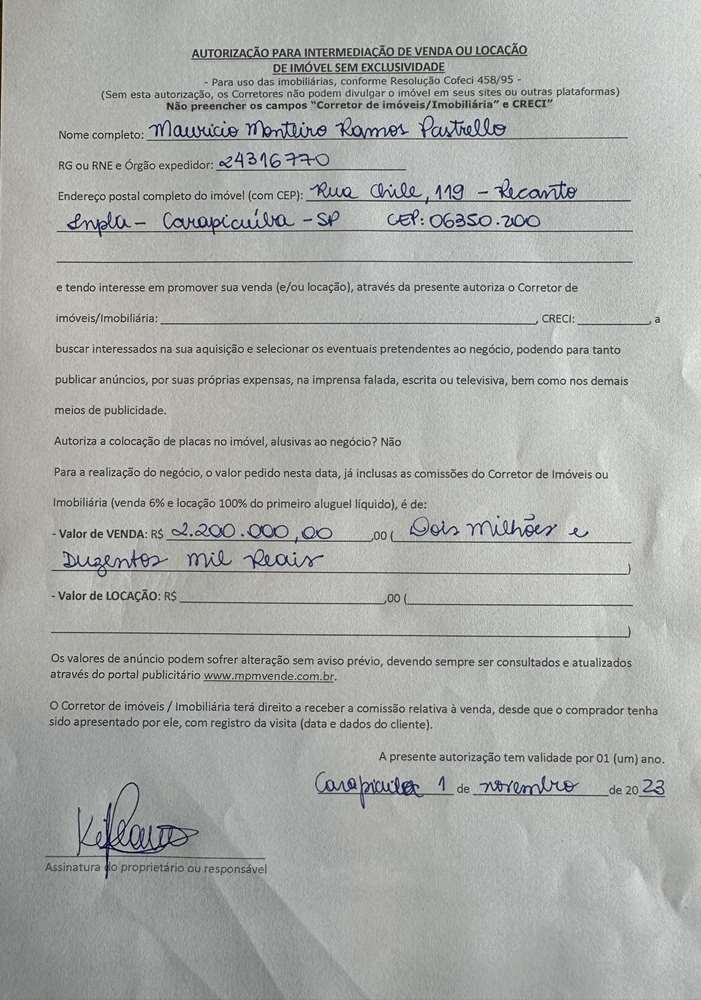 AUTORIZAÇÃO PARA INTERMEDIAÇÃO DE VENDA OU LOCAÇÃO
DE IMÓVEL SEM EXCLUSIVIDADE
- Para uso das imobiliárias, conforme Resolução Cofeci 458/95 -
(Sem esta autorização, os Corretores não podem divulgar o imóvel em seus sites ou outras plataformas)
Não preencher os campos "Corretor de imóveis/Imobiliária" e CRECI"
Nome completo: Mauricio Monteiro Ramos Pastrello
RG ou RNE e Órgão expedidor: 24316770
Endereço postal completo do imóvel (com CEP): Rua Chile, 119 - Recanto
Inpla - Carapicuíba - SP CEP: 06350.200
e tendo interesse em promover sua venda (e/ou locação), através da presente autoriza o Corretor de
imóveis/Imobiliária: , CRECI: , a
buscar interessados na sua aquisição e selecionar os eventuais pretendentes ao negócio, podendo para tanto
publicar anúncios, por suas próprias expensas, na imprensa falada, escrita ou televisiva, bem como nos demais
meios de publicidade.
Autoriza a colocação de placas no imóvel, alusivas ao negócio? Não
Para a realização do negócio, o valor pedido nesta data, já inclusas as comissões do Corretor de Imóveis ou
Imobiliária (venda 6% e locação 100% do primeiro aluguel líquido), é de:
- Valor de VENDA: R$ 2.200.000,00 ,00 ( Dois milhões e
Duzentos mil Reais )
- Valor de LOCAÇÃO: R$ ,00 (
)
Os valores de anúncio podem sofrer alteração sem aviso prévio, devendo sempre ser consultados e atualizados
através do portal publicitário www.mpmvende.com.br.
O Corretor de imóveis / Imobiliária terá direito a receber a comissão relativa à venda, desde que o comprador tenha
sido apresentado por ele, com registro da visita (data e dados do cliente).
A presente autorização tem validade por 01 (um) ano.
1 de novembro de 2023
Assinatura do proprietário ou responsável